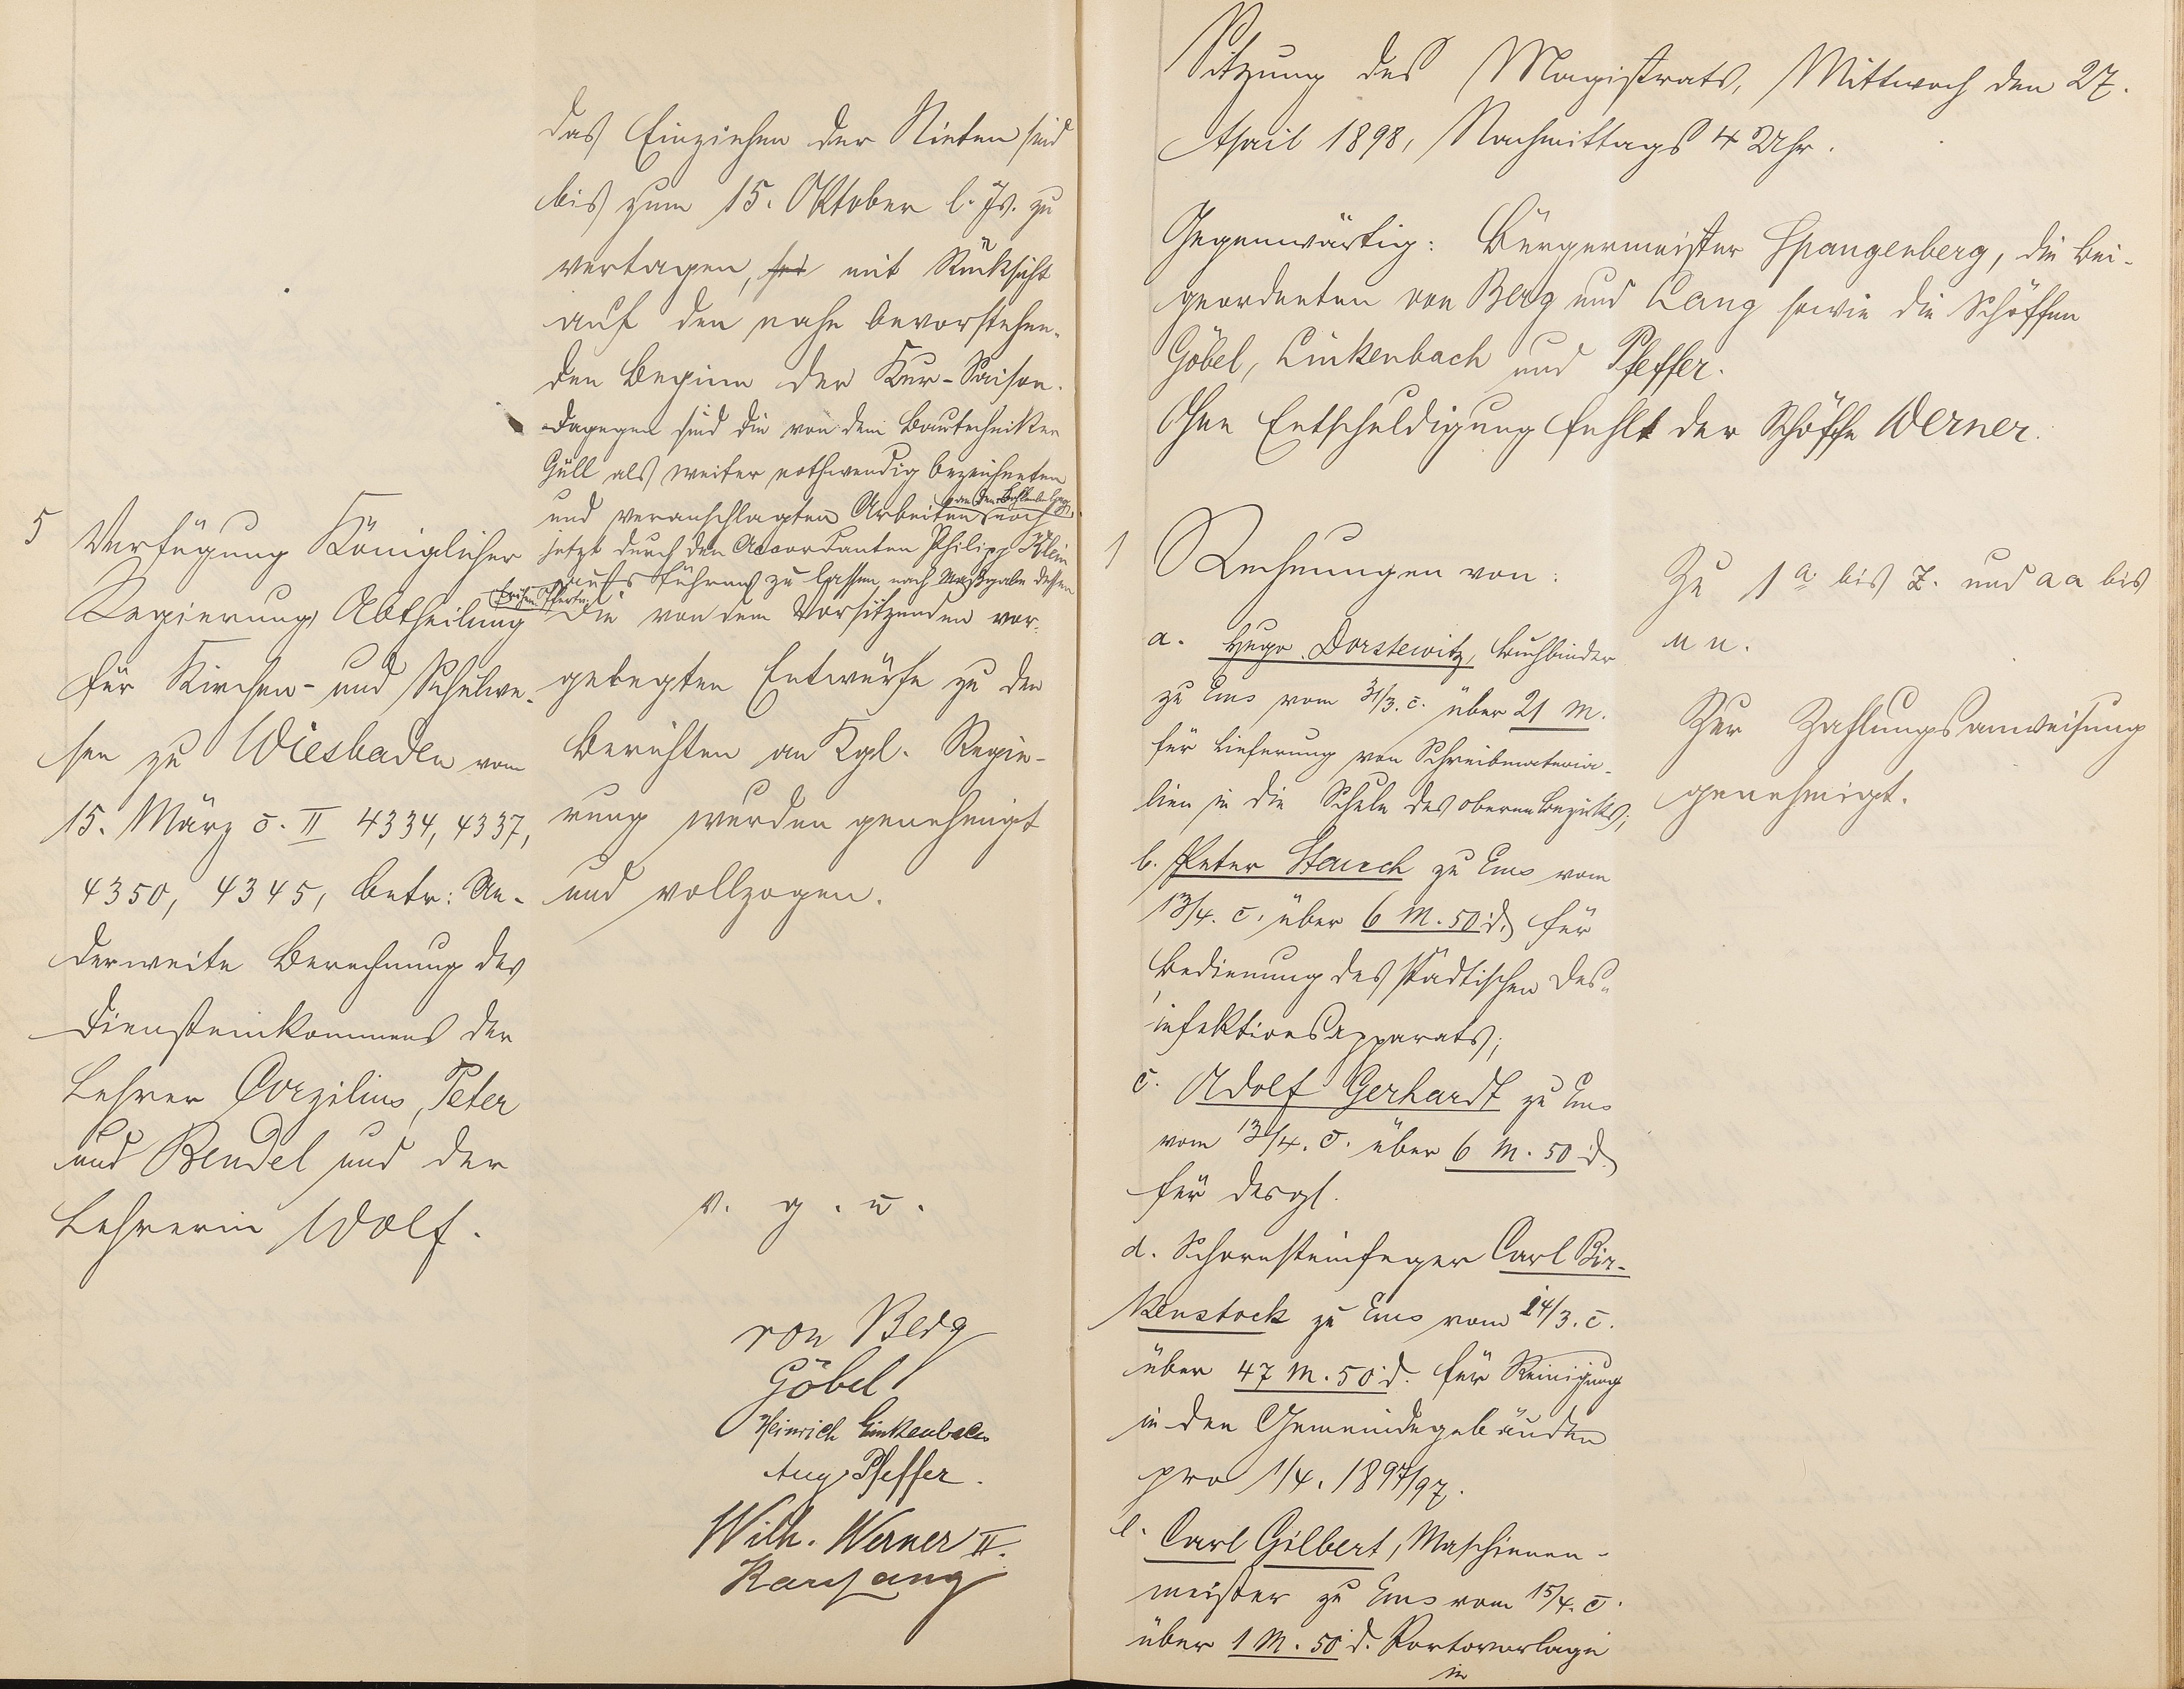 das Einziehen der Nieten sind
bis zum 15. Oktober l. Js. zu
vertagen, sei mit Rücksicht
auf den nahe bevorstehen-
den Beginn der Kur-Saison.
Dagegen sind die von dem Bautechniker
Güll als weiter nothwendig bezeichneten
und veranschlagten Arbeiten noch
jetzt durch den Accordanten Philipp Klein
ausführen zu lassen nach Maßgabe dessen
5 Verfügung Königlicher
Regierung Abtheilung
für Kirchen- und Schulwe-
sen zu Wiesbaden vom
15. März c. II 4334, 4337,
4350, 4345, betr: An-
derweite Berechnung des
Diensteinkommens der
Lehrer Corzilius, Peter
und Bendel und der
Lehrerin Wolf.
Die von dem Vorsitzenden vor-
gelegten Entwürfe zu den
Berichten an Kgl. Regie-
rung wurden genehmigt
und vollzogen.
v. g. u.
von Berg
Göbel
Heinrich Linkenbach
Aug. Pfeffer.
Wilh. Werner II.
Karl Lang
Sitzung des Magistrats, Mittwoch den 27.
April 1898, Nachmittags 4 Uhr.
Gegenwärtig: Bürgermeister Spangenberg, die Bei-
geordneten von Berg und Lang sowie die Schöffen
Göbel, Linkenbach und Pfeffer.
Ohne Entschuldigung fehlt der Schöffe Werner.
1 Rechnungen von:
a. Hugo Dorstewitz, Buchbinder
zu Ems vom 31/3. c. über 21 M.
für Lieferung von Schreibmateria-
lien in die Schule des oberen Bezirks;
b. Peter Stauch zu Ems vom
13/4. c. über 6 M. 50 d. für
Bedienung des städtischen Des-
infektionsapparats;
c. Adolf Gerhardt zu Ems
vom 13/4. c. über 6 M. 50 d.
für desgl.
d. Schornsteinfeger Carl Bir-
kenstock zu Ems vom 24/3. c.
über 47 M. 50 d. für Reinigung
in den Gemeindegebäuden
pro 1/4. 1897/97.
e. Carl Gilbert, Maschinen-
meister zu Ems vom 15/4. c.
über 1 M. 50 d. Portovorlage
in
Zu 1 a. bis z. und aa bis
nn.
Zur Zahlungsanweisung
genehmigt.